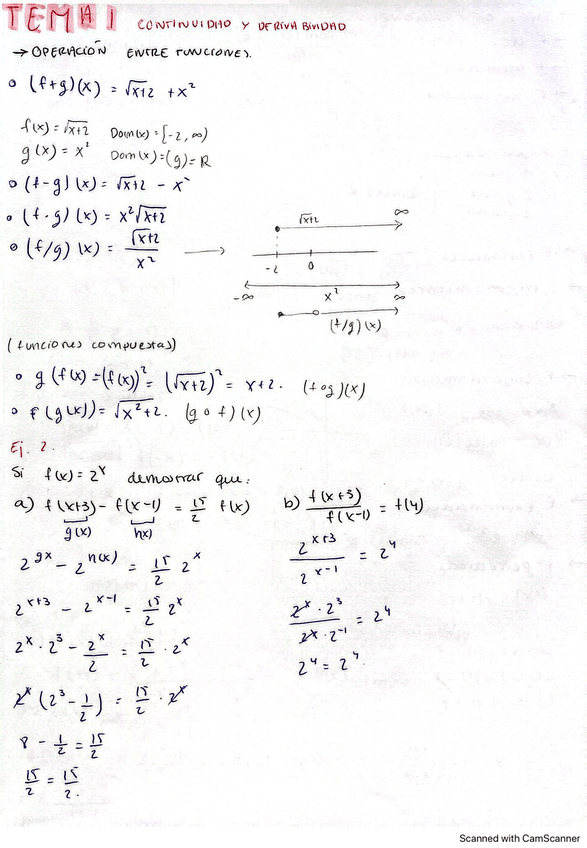 TEMA 1 CONTINUIDAD Y DERIVABILIDAD
→ OPERACIÓN ENTRE FUNCIONES.
o (f+g)(x) = √x+2 + x²
f(x) = √x+2 Dom(x) = [-2, ∞)
g(x) = x² Dom(x) = (g) = R
o (f-g)(x) = √x+2 - x²
• (f·g)(x) = x²√x+2
o (f/g)(x) = √x+2 / x² →
√x+2 ∞
-2 0
-∞ x² ∞
(f/g)(x)
(funciones compuestas)
o g(f(x) = (f(x))² = (√x+2)² = x+2. (fog)(x)
o f(g(x)) = √x²+2. (g o f)(x)
Ej. 2.
Si f(x) = 2ˣ demostrar que:
a) f(x+3) - f(x-1) = 15/2 f(x)
g(x) h(x)
2^gx - 2^h(x) = 15/2 2ˣ
2^x+3 - 2^x-1 = 15/2 2ˣ
2ˣ · 2³ - 2ˣ/2 = 15/2 · 2ˣ
2ˣ (2³ - 1/2) = 15/2 · 2ˣ
8 - 1/2 = 15/2
15/2 = 15/2.
b) f(x+3) / f(x-1) = f(4)
2^x+3 / 2^x-1 = 2⁴
2ˣ · 2³ / 2ˣ · 2^-1 = 2⁴
2⁴ = 2⁴.
Scanned with CamScanner